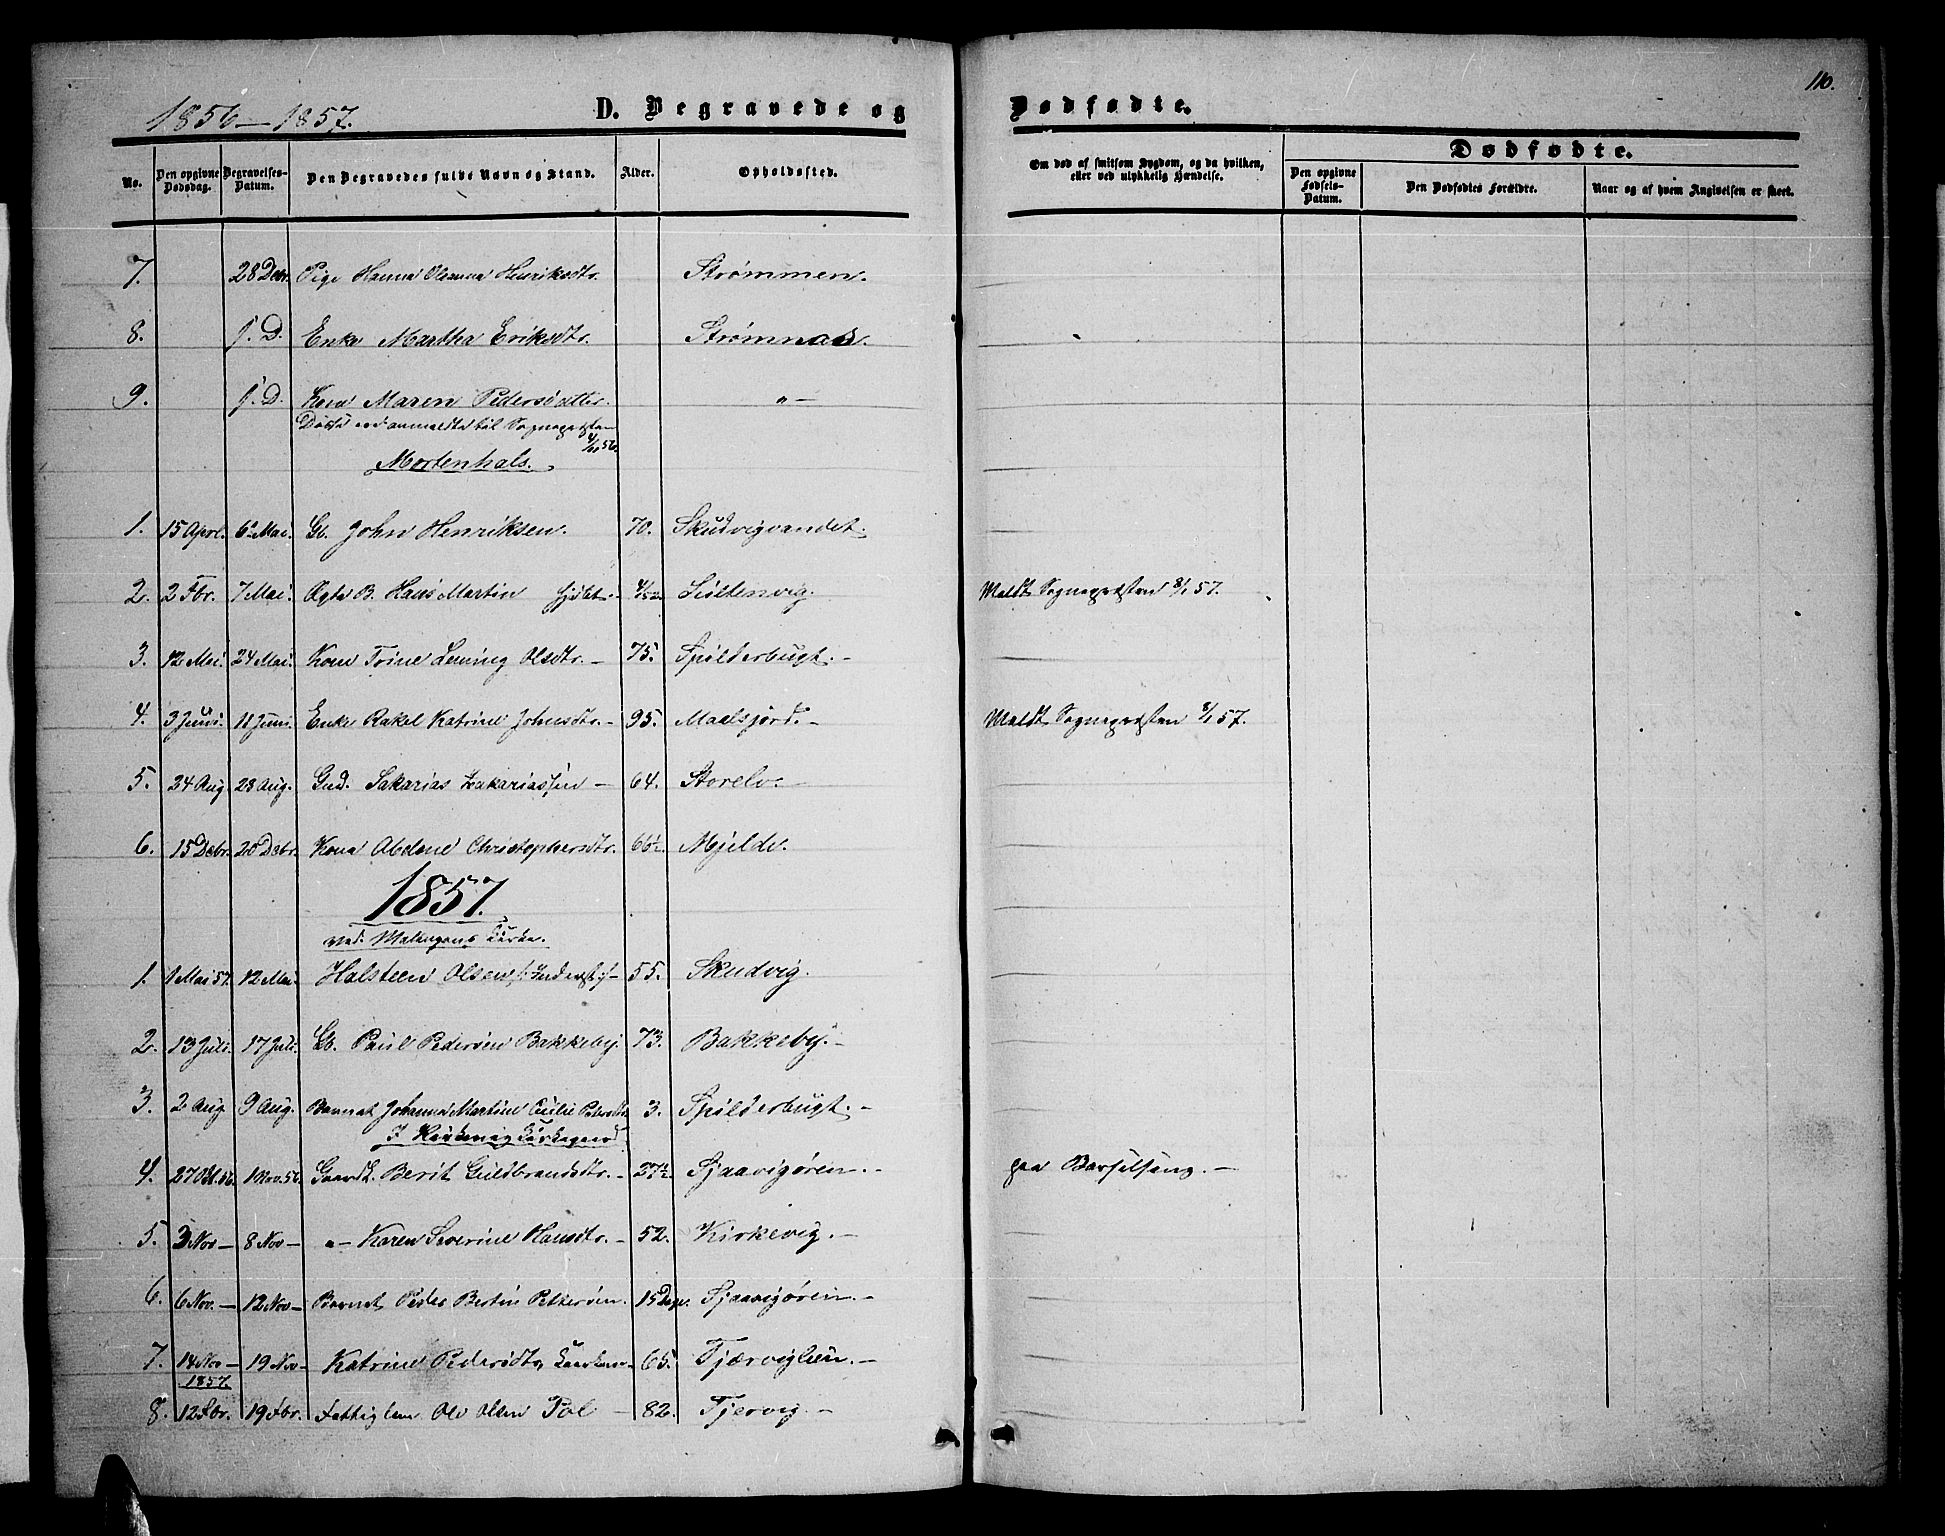 110.
1856–1857. D. Begravede og Dødfødte.
No. Den opgivne Dødsdag. Begravelses-Datum. Den Begravedes fulde Navn og Stand. Alder. Opholdssted. Om død af smitsom Sygdom, og da hvilken, eller ved ulykkelig Hændelse. Dødfødte.
Den opgivne Fødsels-Datum. Den Dødfødtes Forældre. Naar og af hvem Angivelsen er skeet.
7. 28 Debr. Pige Hanna Oleanna Henriksdtr. Strømmen.
8. s. D. Enke Martha Eriksdtr. Strømnæs.
9. s. D. Kone Maren Pedersdatter. "–
Disse anmeldte til Sognepræsten
Mortenhals.
1. 15 Aprl. 6 Mai. Gb. John Henriksen. 70. Skudvigvandet.
2. 2 Fbr. 7 Mai. Ægte B. Hans Martin 4/52 Sultenvig. Meldt Sognepræsten 8/1 57.
3. 12 Mai. 24 Mai. Kone Trine Lening Olsdtr. – 75. Spilderbugt. –
4. 3 Juni. 11 Juni. Enke Rakel Katrine Johnsdtr. – 95. Maalsjord. – Meldt Sognepræsten 8/1 57.
5. 24 Aug. 28 Aug. Gmd. Sakarias Zakariassen – 64. Storelv. –
6. 15 Debr. 20 Debr. Kone Abelone Christophersdtr. 66½. Mjelde.
1857.
ved Malangens Kirke.
1. 1 Mai 57. 12 Mai. Halsteen Olsen 55. Skudvig.
2. 13 Juli. 17 Juli. Gb. Paul Pedersen Bakkeby. 73. Bakkeby. –
3. 2 Aug. 9 Aug. Barnet Johanna Martine Cecilie Pedersdtr. 3. Spilderbugt. –
I Kirkevig Kirkegaard
4. 27 Okt. 56. 1 Nov. 56. Gaardk. Berit Guldbrandsdtr. – 27½. Sjaavigøren. – paa Barselseng. –
5. 3 Nov – 8 Nov – "– Karen Severine Hansdtr. – 52. Kirkevig. –
6. 6 Nov. – 12 Nov – Barnet Peder Bertin Pettersen. 15 Dage. Sjaavigøren. –
7. 14 Nov – 19 Nov – Katrine Pedersdtr. 65. Tjærviglien. –
1857.
8. 12 Fbr. 19 Fbr. Fattiglem Ole Olsen Pol – 82. Tjervig. –